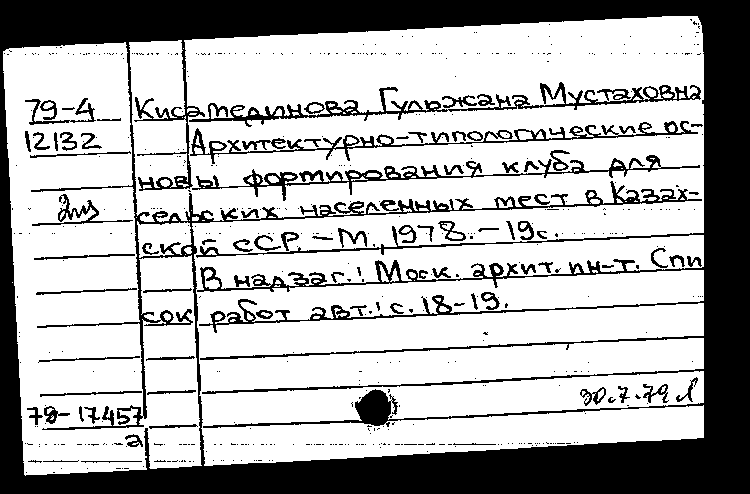 79-4 Кисамединова, Гульжана Мустаховна
12132 Архитектурно-типологические ос-
новы формирования клуба для
сельских населенных мест в Казах-
ской ССР. – М., 1978. – 19с.
В надзаг.: Моск. архит. ин-т. Спи
сок работ авт.: с. 18-19.
30.7.79
79-17457
а